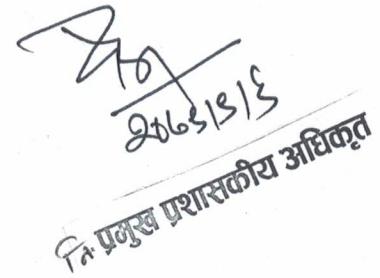 २०७९।९।६
नि. प्रमुख प्रशासकीय अधिकृत